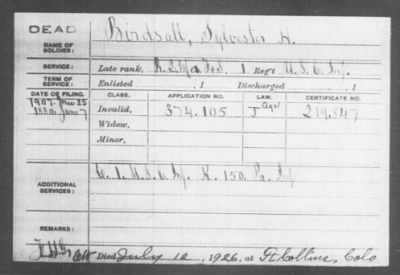 DEAD
NAME OF SOLDIER: Birdsall, Sylvester H.
SERVICE: Late rank, 1 Reg't U.S.V. Inf.
TERM OF SERVICE: Enlisted , 1 Discharged , 1
DATE OF FILING. CLASS. APPLICATION NO. LAW. CERTIFICATE NO.
1907. Mar 25 Age
1880. June 7 Invalid, 374.105 J 219.847
Widow,
Minor,
ADDITIONAL SERVICES: 1 U.S.V. Inf. K. 150. Pa. Inf
REMARKS:
Died July 12, 1926, at Ft Collins, Colo